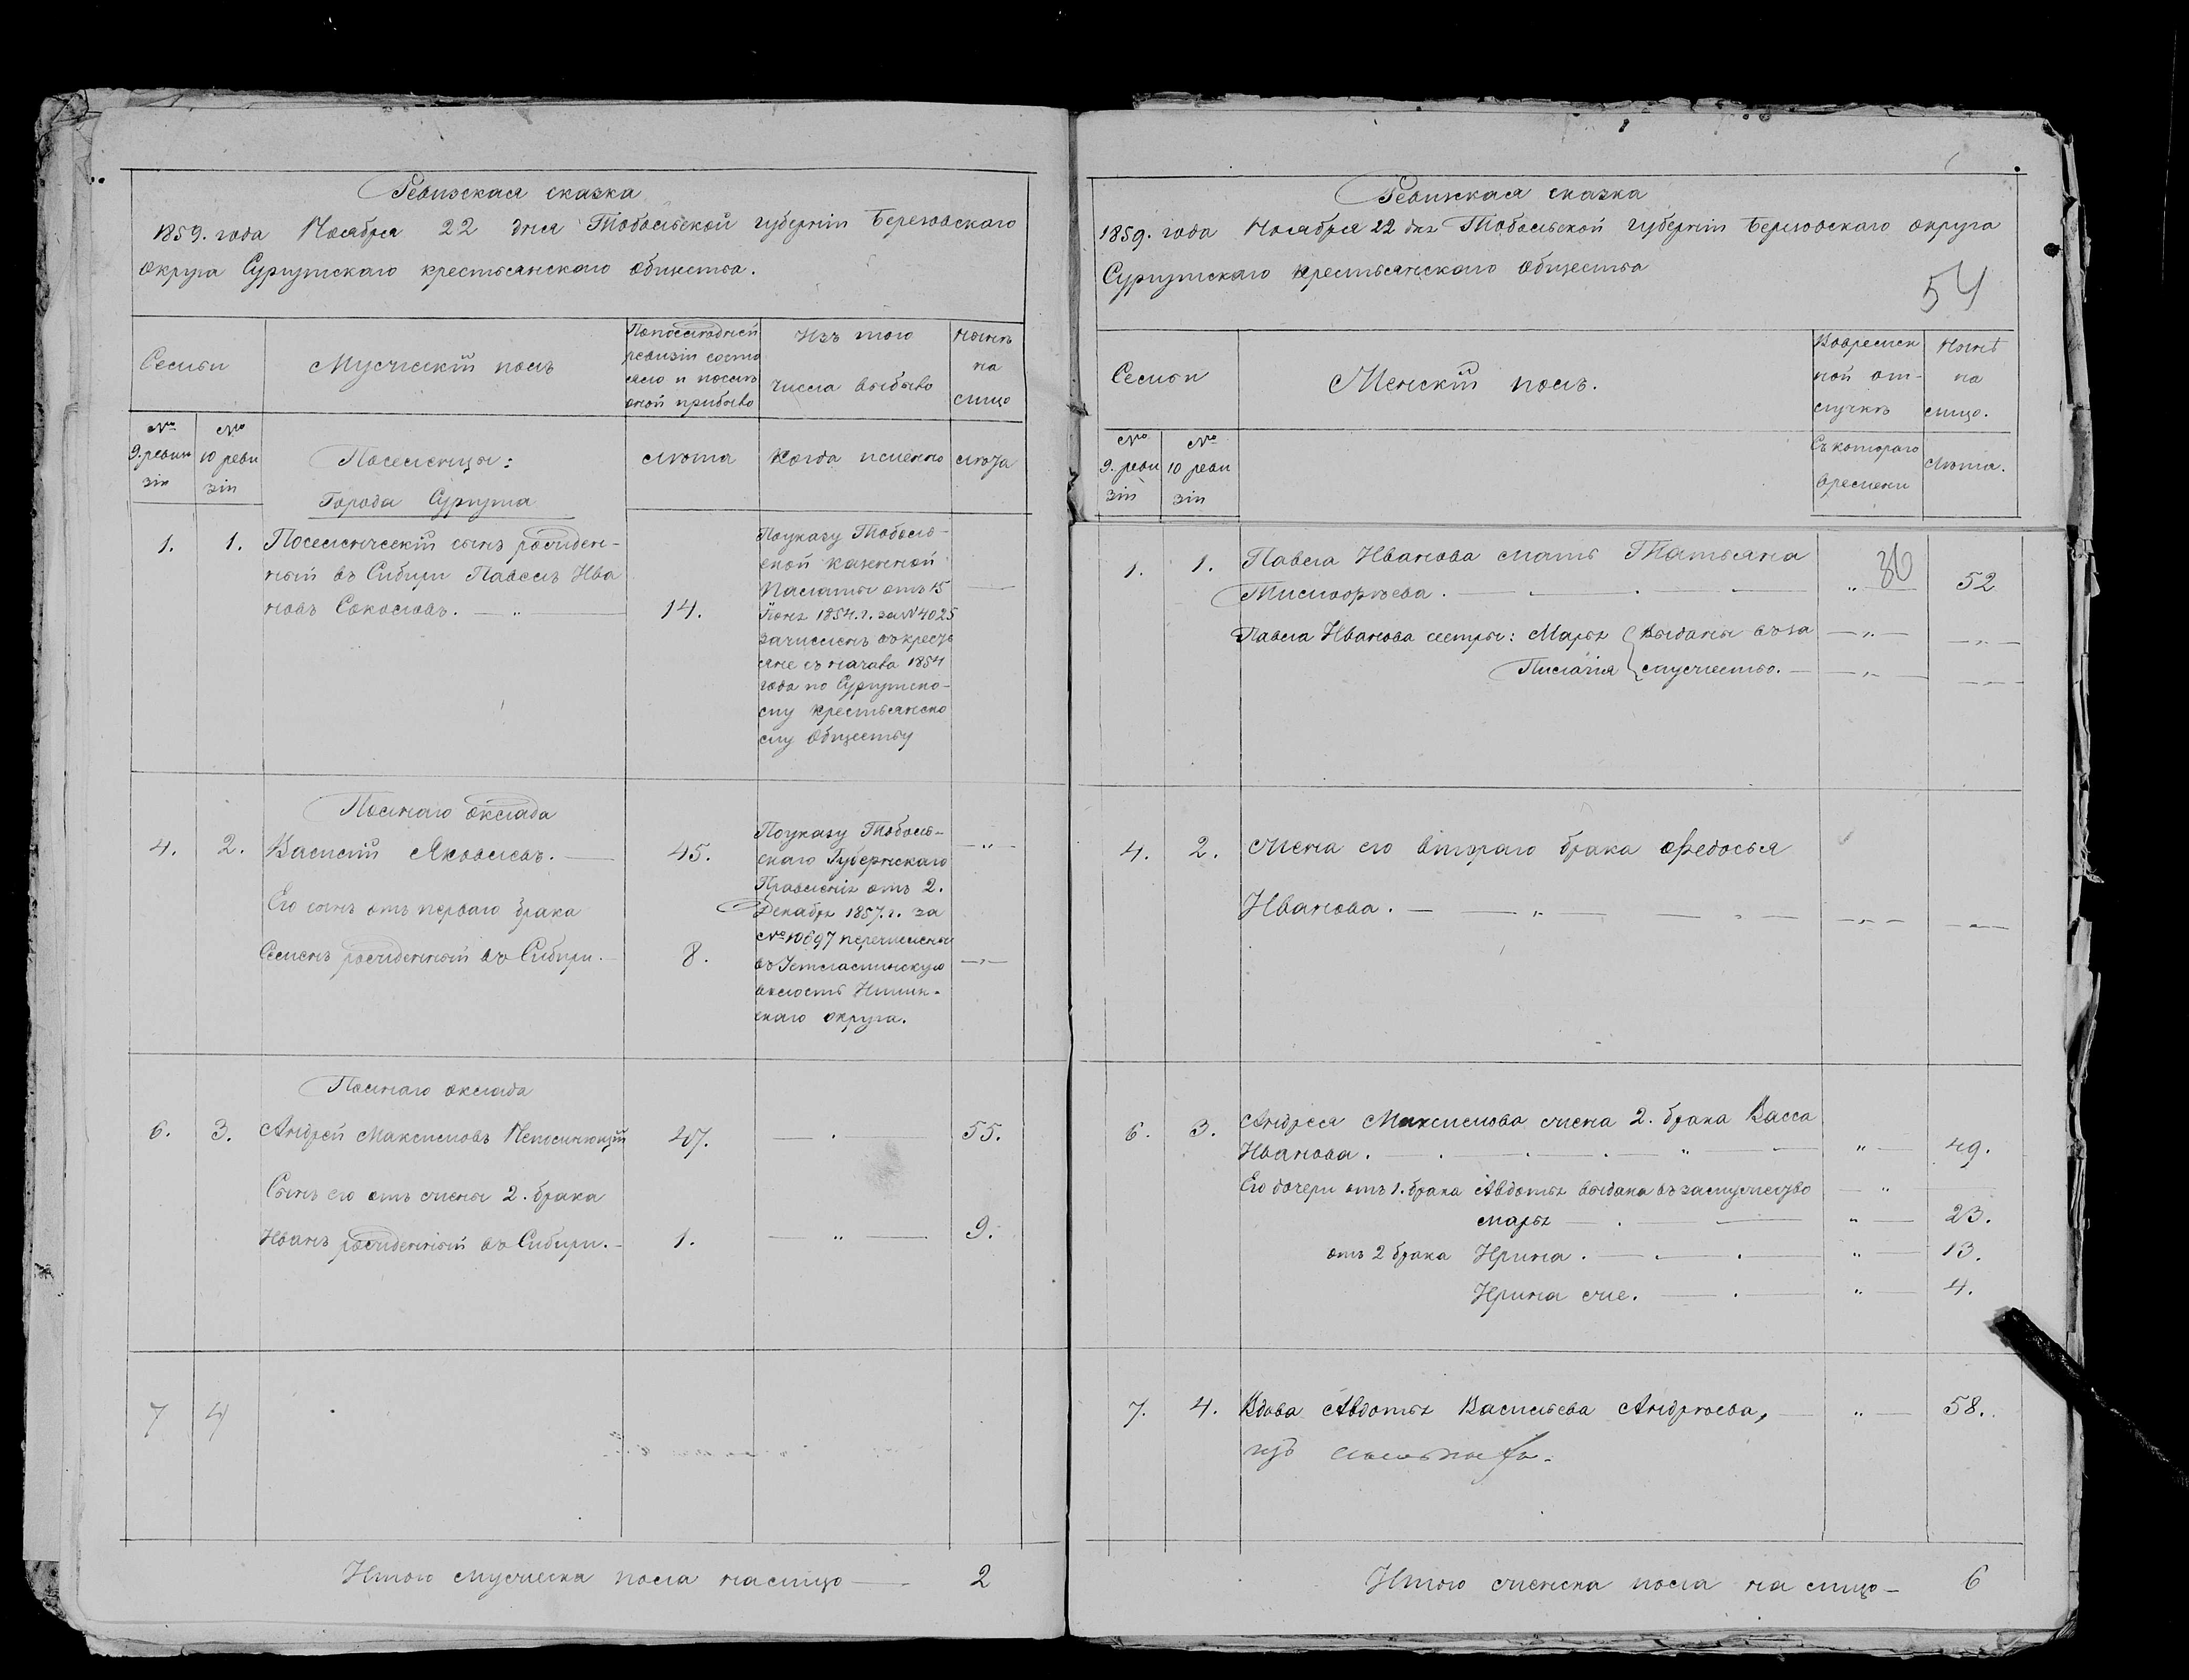 Ревизская сказка
1859. года Ноября 22 дня Тобольской губерніи Березовскаго
округа Сургутскаго крестьянскаго общества.
Семьи
Мужескій полъ
По последней
ревизіи состо
яло и послѣ
оной прибыло
Изъ того
числа выбыло
Нынѣ
на
лицо
№
9. реви
зіи
№
10 реви
зіи
Поселенцы:
Города Сургута
лѣта
Когда именно
лѣта
1. 1. Поселенческій сынъ рожден-
ный въ Сибири Павелъ Ива
новъ Соколовъ. — „ — 14.
По указу Тоболь-
ской Казенной
Палаты отъ 15
Іюня 1854. г. за № 4025
зачисленъ въ кресть
яне съ начала 1854
года по Сургутско-
му крестьянско
му обществу
—
Полнаго оклада
4. 2. Василій Яковлевъ. — 45. — „ —
Его сынъ отъ перваго брака
Семенъ рожденный въ Сибири. — 8. — „ —
По указу Тоболь-
скаго Губернскаго
Правленія отъ 2.
Декабря 1857. г. за
№ 10697 перечислены
въ Устламинскую
волость Ишим-
скаго округа.
Полнаго оклада
6. 3. Андрей Максимовъ Непомнющій 47. — . — 55.
Сынъ его отъ жены 2. брака
Иванъ рожденный въ Сибири. — 1. — „ — 9.
7 4
Итого мужеска пола налицо — 2
Ревизская сказка
1859. года Ноября 22 дня Тобольской губерніи Березовскаго округа
Сургутскаго крестьянскаго общества
54
Семьи
Женскій полъ.
Во времен
ной от-
лучкѣ
Нынѣ
на
лицо.
№
9. реви
зіи
№
10 реви
зіи
Съ котораго
времени
Лѣта.
1. 1. Павла Иванова мать Татьяна
Тимофѣева. — „ — 52
Павла Иванова сестры: Марья выданы въ за — „ — — „ —
Пилагія мужество. — — „ — — „ —
4. 2. Жена его втораго брака Федосья
Иванова. — — „ — — „ — — „ — — „ —
6. 3. Андрея Максимова жена 2. брака Васса
Иванова. — . — „ — „ — 49.
Его дочери отъ 1. брака Авдотья выдана въ замужество — „
Марья — . — „ — 23.
отъ 2 брака Ирина. — . — „ 13.
Ирина же. — . — „ 4.
7. 4. Вдова Авдотья Васильева Андрѣева, — „ — 58.
изъ
Итого женска пола на лицо — 6